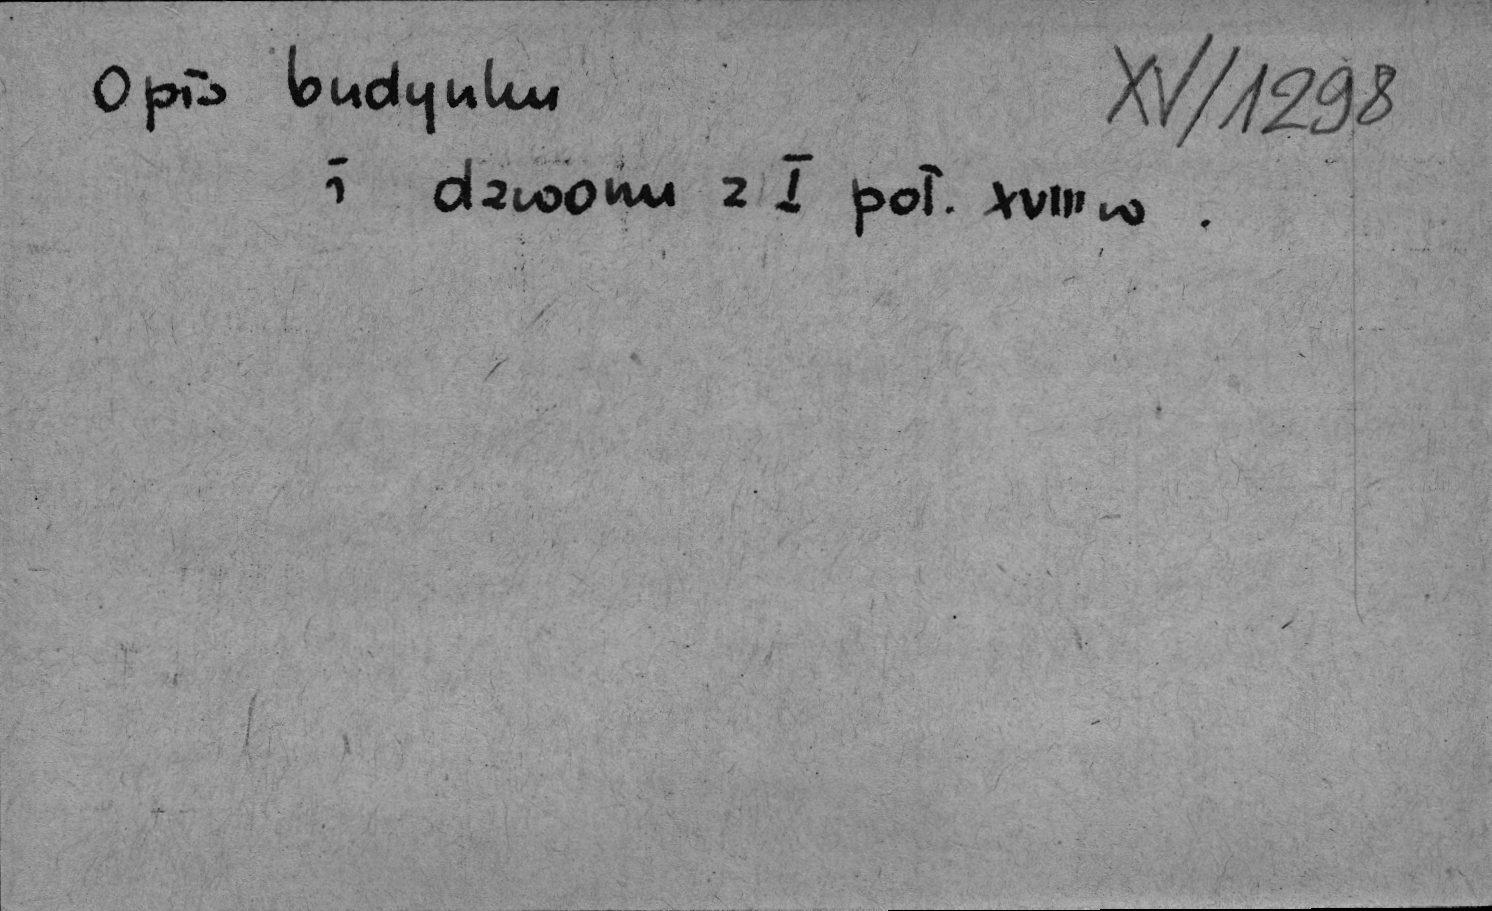 Opis budynku
XV/1298
i dzwonu z I poł. XVIII w.